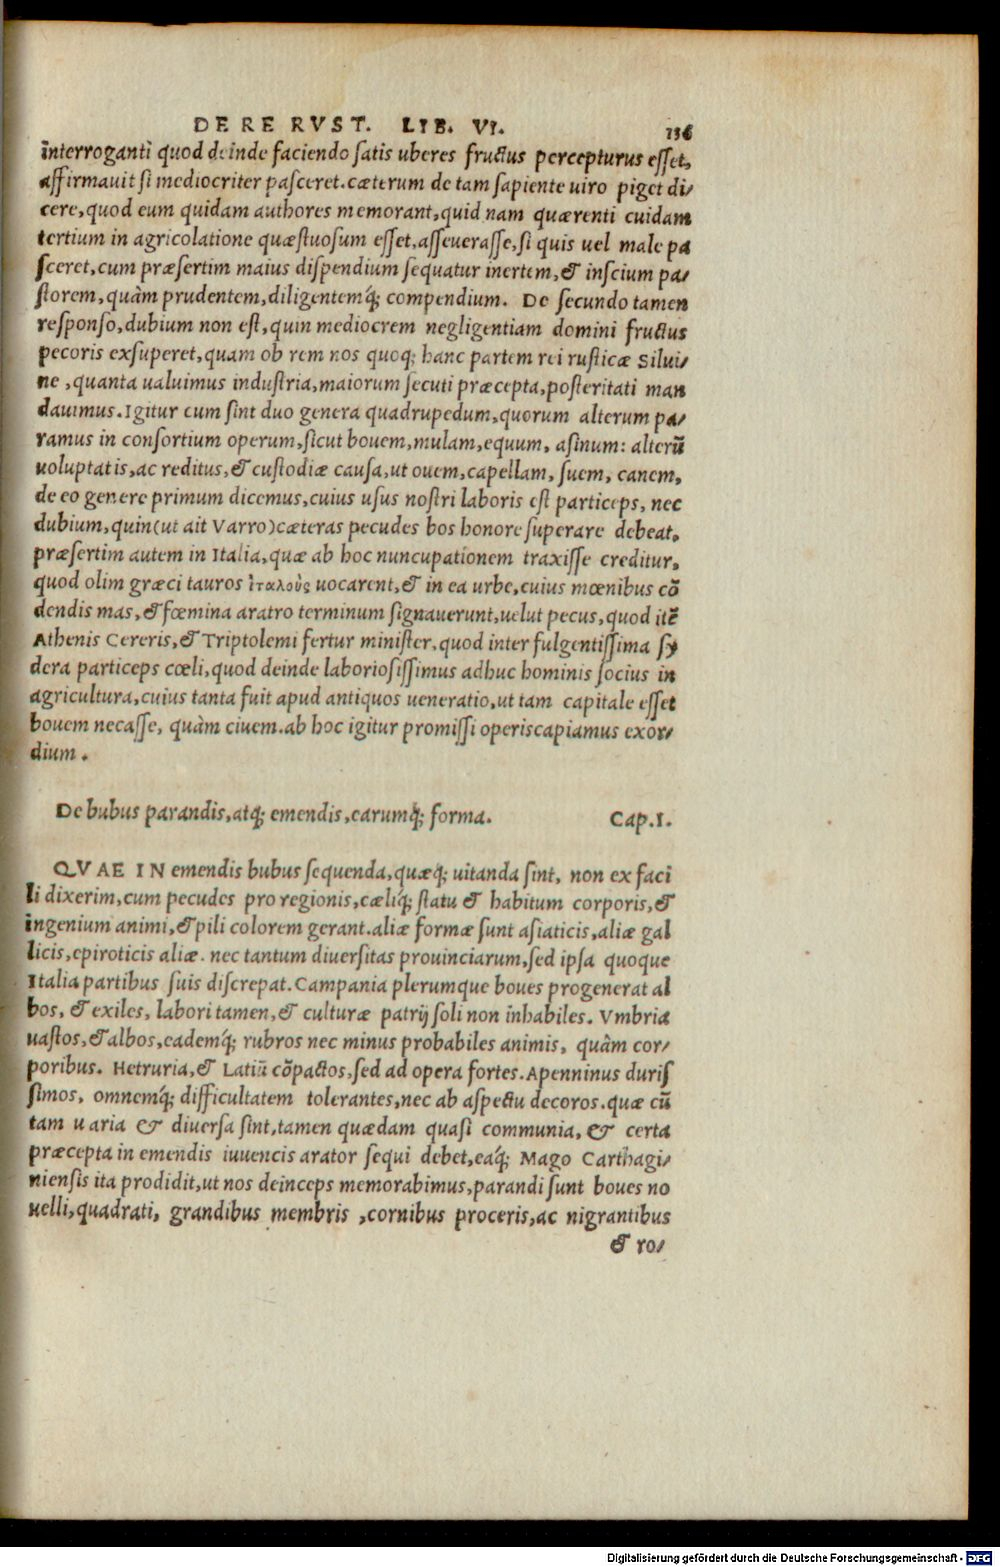 DE RE RVST. LIB. VI. 136
interroganti quod deinde faciendo satis uberes fructus percepturus esset,
affirmauit si mediocriter pasceret. cæterum de tam sapiente uiro piget di/
cere, quod eum quidam authores memorant, quid nam quærenti cuidam
tertium in agricolatione quæstuosum esset, asseuerasse, si quis uel male pa
sceret, cum præsertim maius dispendium sequatur inertem, & inscium pa/
storem, quàm prudentem, diligentemq́; compendium. De secundo tamen
responso, dubium non est, quin mediocrem negligentiam domini fructus
pecoris exsuperet, quam ob rem nos quoq; hanc partem rei rusticæ Silui/
ne, quanta ualuimus industria, maiorum secuti præcepta, posteritati man
dauimus. Igitur cum sint duo genera quadrupedum, quorum alterum pa/
ramus in consortium operum, sicut bouem, mulam, equum, asinum: alterũ
uoluptatis, ac reditus, & custodiæ causa, ut ouem, capellam, suem, canem,
de eo genere primum dicemus, cuius usus nostri laboris est particeps, nec
dubium, quin (ut ait Varro) cæteras pecudes bos honore superare debeat,
præsertim autem in Italia, quæ ab hoc nuncupationem traxisse creditur,
quod olim græci tauros ἰταλοὺς uocarent, & in ea urbe, cuius mœnibus cõ
dendis mas, & fœmina aratro terminum signauerunt, uelut pecus, quod itẽ
Athenis Cereris, & Triptolemi fertur minister, quod inter fulgentissima sy
dera particeps cœli, quod deinde laboriosissimus adhuc hominis socius in
agricultura, cuius tanta fuit apud antiquos ueneratio, ut tam capitale esset
bouem necasse, quàm ciuem. ab hoc igitur promissi operis capiamus exor/
dium.
De bubus parandis, atq; emendis, earumq́; forma. Cap. I.
QVAE IN emendis bubus sequenda, quæq́; uitanda sint, non ex faci
li dixerim, cum pecudes pro regionis, cæliq́; statu & habitum corporis, &
ingenium animi, & pili colorem gerant. aliæ formæ sunt asiaticis, aliæ gal
licis, epiroticis aliæ. nec tantum diuersitas prouinciarum, sed ipsa quoque
Italia partibus suis discrepat. Campania plerumque boues progenerat al
bos, & exiles, labori tamen, & culturæ patrij soli non inhabiles. Vmbria
uastos, & albos, eademq́; rubros nec minus probabiles animis, quàm cor/
poribus. Hetruria, & Latiũ cõpactos, sed ad opera fortes. Apenninus duris
simos, omnemq́; difficultatem tolerantes, nec ab aspectu decoros. quæ cũ
tam uaria & diuersa sint, tamen quædam quasi communia, & certa
præcepta in emendis iuuencis arator sequi debet, eaq́; Mago Carthagi/
niensis ita prodidit, ut nos deinceps memorabimus, parandi sunt boues no
uelli, quadrati, grandibus membris, cornibus proceris, ac nigrantibus
& ro/
Digitalisierung gefördert durch die Deutsche Forschungsgemeinschaft - DFG